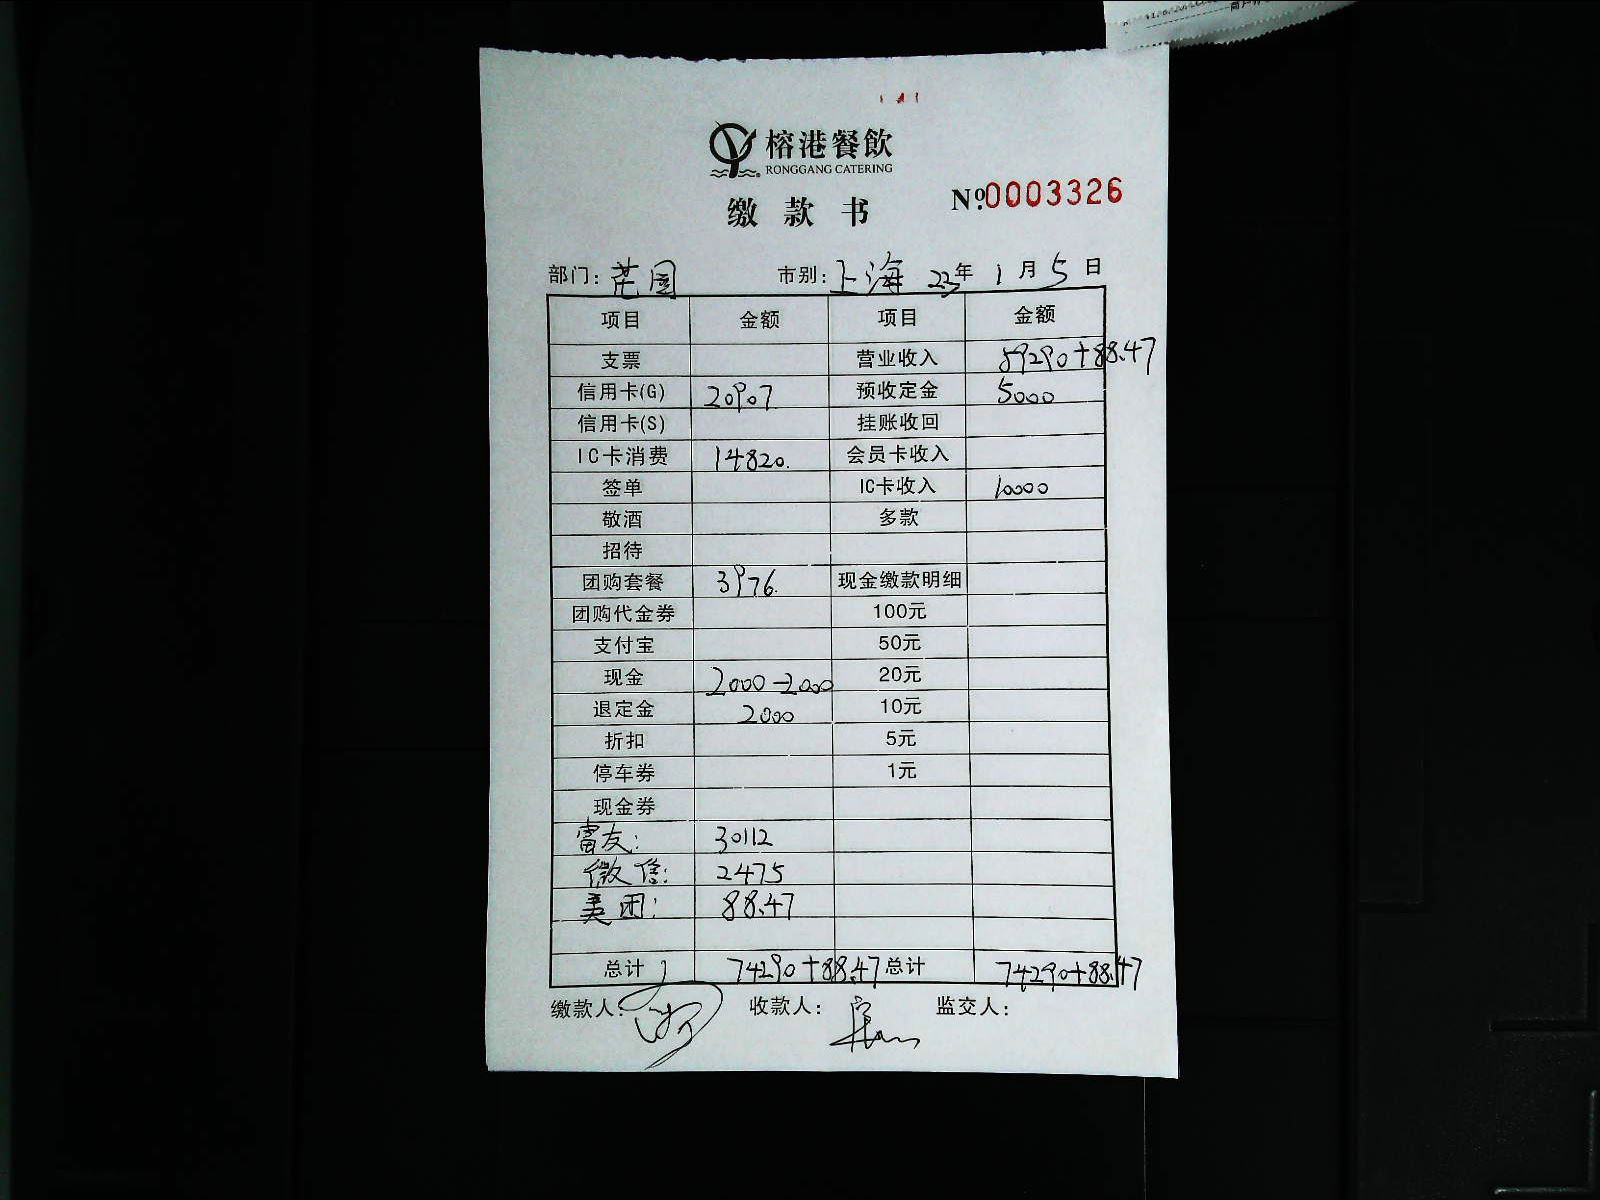 榕港餐飲
RONGGANG CATERING
缴款书 №0003326
部门: 花园 市别: 上海 23年 1月 5日
项目 金额 项目 金额
支票 营业收入 59290+88.47
信用卡(G) 20907 预收定金 5000
信用卡(S) 挂账收回
IC卡消费 14820. 会员卡收入
签单 IC卡收入 10000
敬酒 多款
招待
团购套餐 3976. 现金缴款明细
团购代金券 100元
支付宝 50元
现金 2000-2000 20元
退定金 2000 10元
折扣 5元
停车券 1元
现金券
富友: 30112
微信: 2475
美团: 88.47
总计 74290+88.47 总计 74290+88.47
缴款人: 收款人: 监交人: